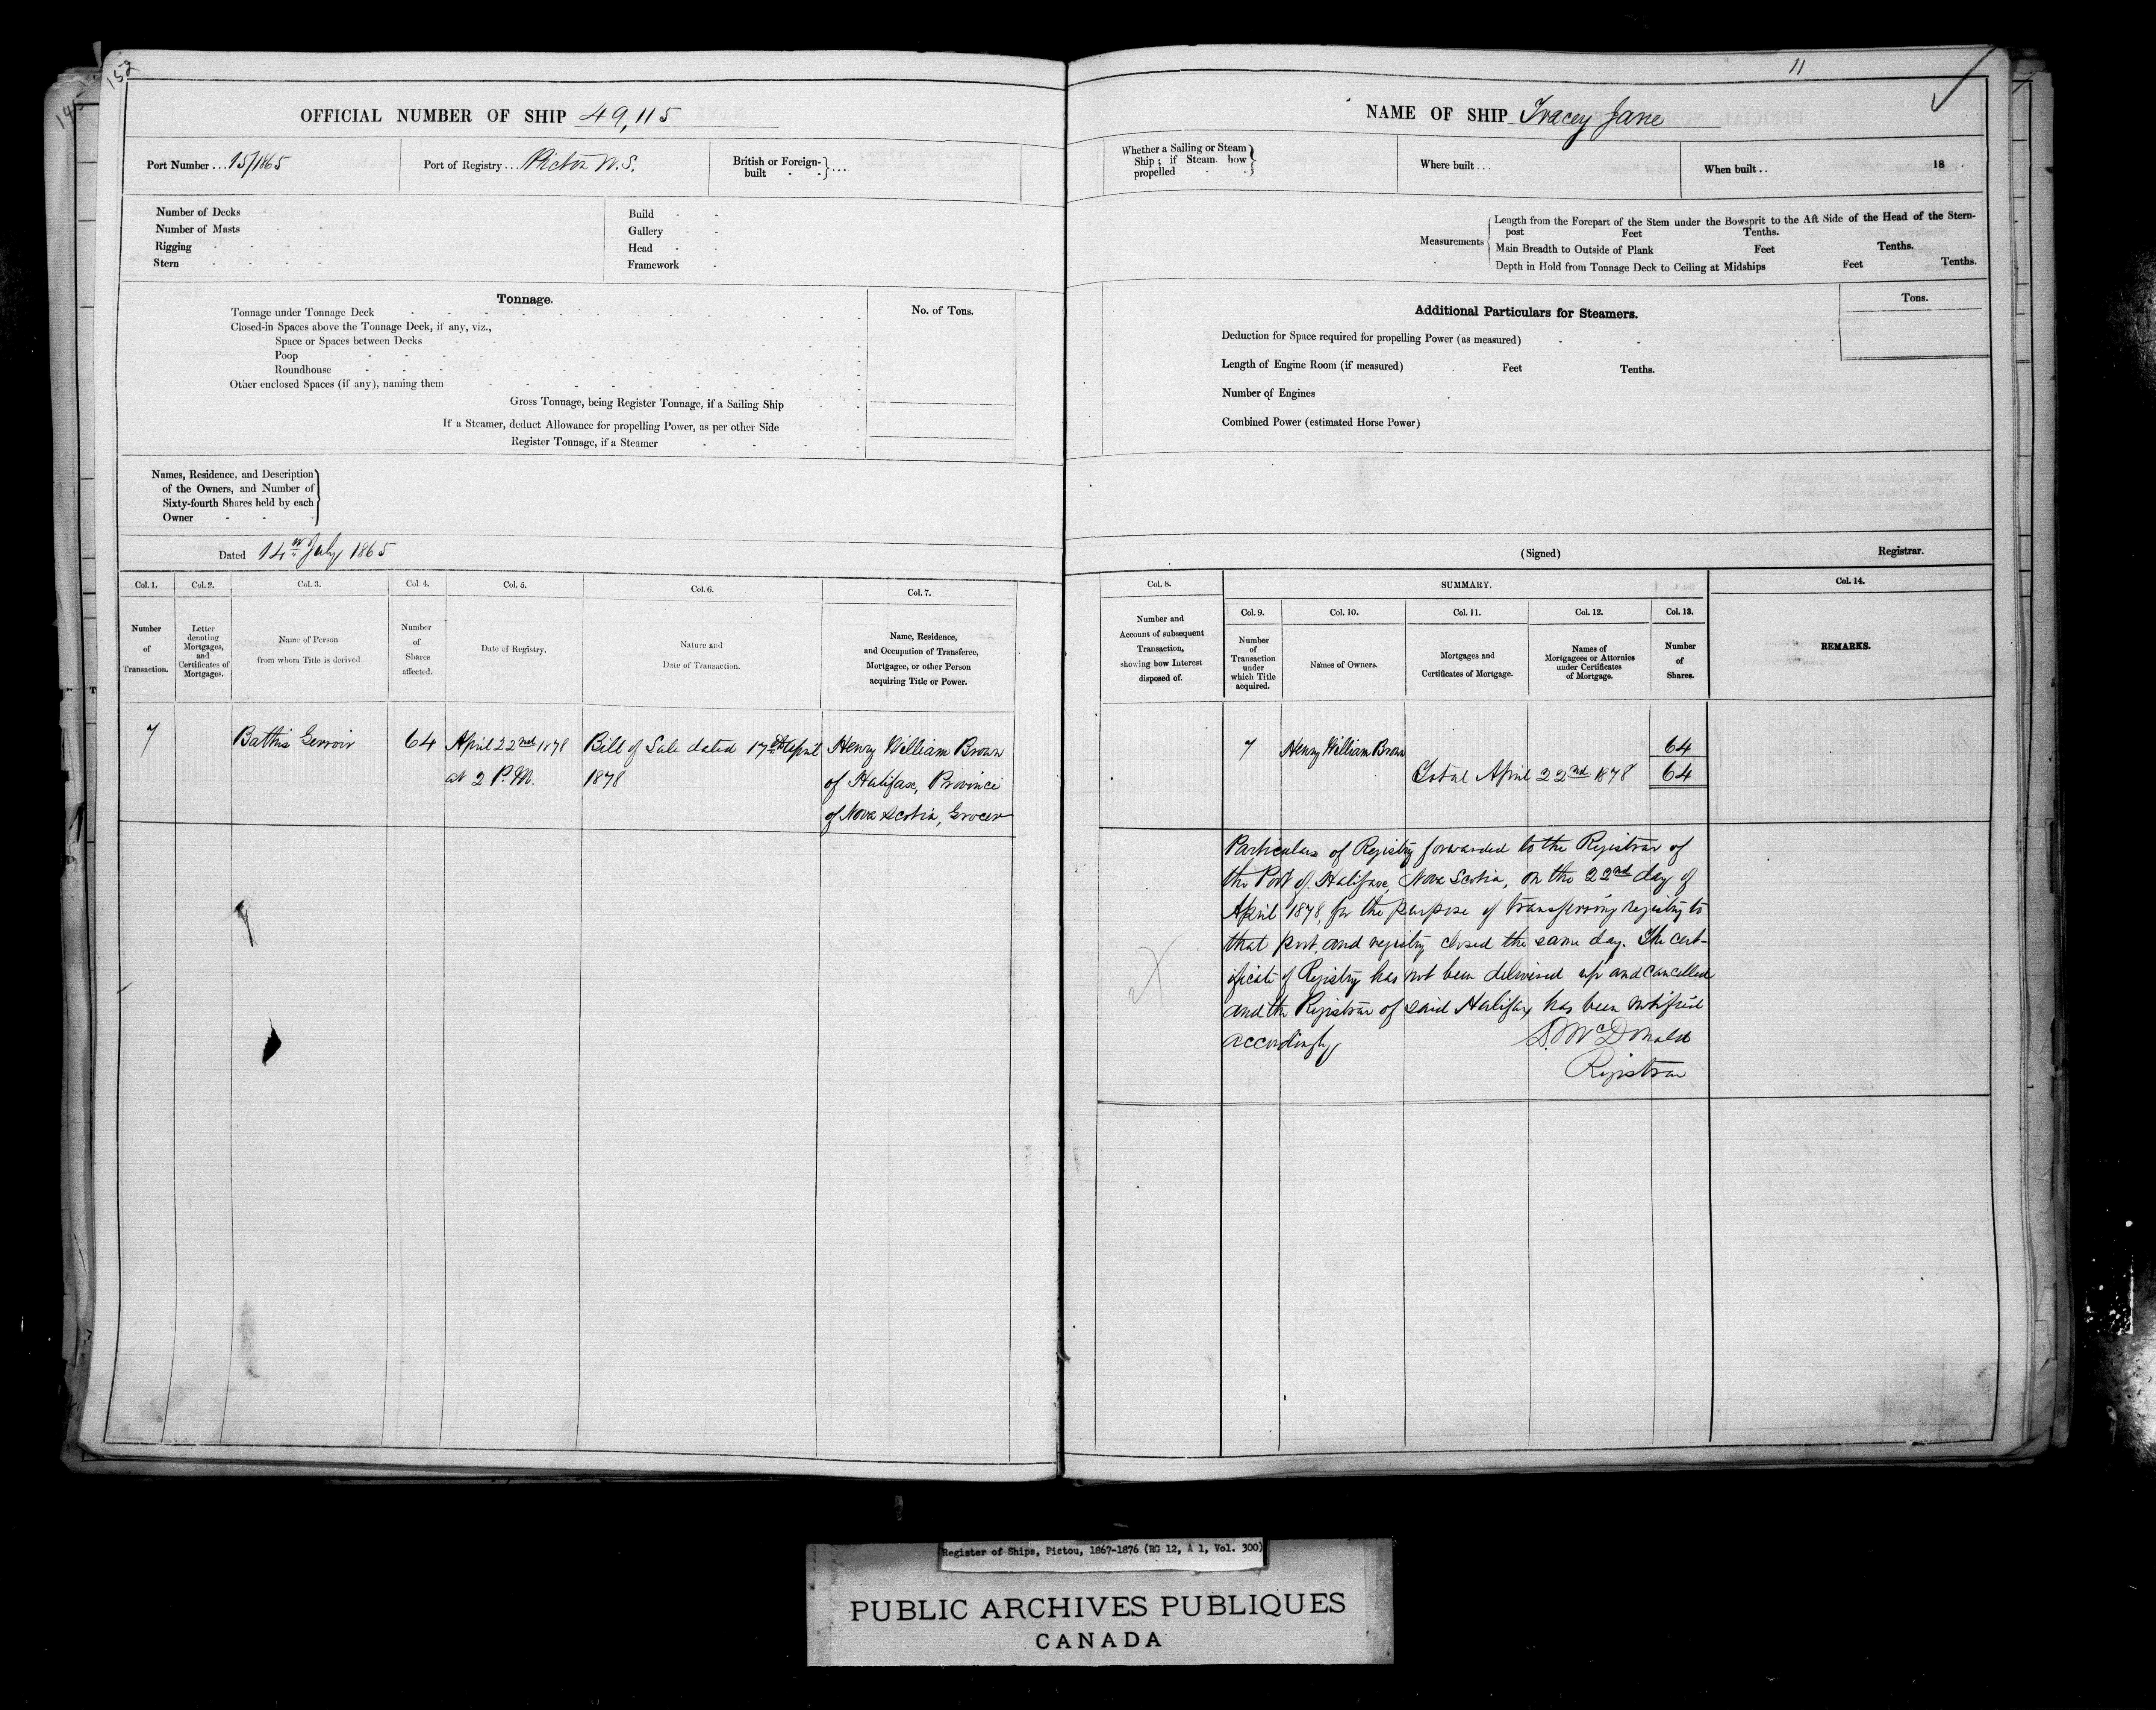 152
OFFICIAL NUMBER OF SHIP 49,115
Port Number ... 15/1865
Port of Registry ... Pictou N.S.
British or Foreign-
built - - } ....
Number of Decks
Number of Masts
Rigging
Stern
Build
Gallery
Head
Framework
Tonnage.
No. of Tons.
Tonnage under Tonnage Deck
Closed-in Spaces above the Tonnage Deck, if any, viz.,
Space or Spaces between Decks
Poop
Roundhouse
Other enclosed Spaces (if any), naming them
Gross Tonnage, being Register Tonnage, if a Sailing Ship
If a Steamer, deduct Allowance for propelling Power, as per other Side
Register Tonnage, if a Steamer
Names, Residence, and Description
of the Owners, and Number of
Sixty-fourth Shares held by each
Owner
Dated 14th July 1865
Col. 1.
Number
of
Transaction.
Col. 2.
Letter
denoting
Mortgages,
and
Certificates of
Mortgages.
Col. 3.
Name of Person
from whom Title is derived
Col. 4.
Number
of
Shares
affected.
Col. 5.
Date of Registry.
Col. 6.
Nature and
Date of Transaction.
Col. 7.
Name, Residence,
and Occupation of Transferee,
Mortgagee, or other Person
acquiring Title or Power.
7
Gerroir
64
April 22nd 1878
at 2 P.M.
Bill of Sale dated 17th April
1878
Henry William Brown
of Halifax, Province
of Nova Scotia, Grocer
11
NAME OF SHIP Tracey Jane
Whether a Sailing or Steam
Ship; if Steam, how
propelled
Where built ...
When built .. 18
Measurements
Length from the Forepart of the Stem under the Bowsprit to the Aft Side of the Head of the Stern-
post Feet Tenths.
Main Breadth to Outside of Plank Feet Tenths.
Depth in Hold from Tonnage Deck to Ceiling at Midships Feet Tenths.
Additional Particulars for Steamers.
Tons.
Deduction for Space required for propelling Power (as measured)
Length of Engine Room (if measured) Feet Tenths.
Number of Engines
Combined Power (estimated Horse Power)
(Signed) Registrar.
Col. 8.
Number and
Account of subsequent
Transaction,
showing how Interest
disposed of.
SUMMARY.
Col. 9.
Number
of
Transaction
under
which Title
acquired.
Col. 10.
Names of Owners.
Col. 11.
Mortgages and
Certificates of Mortgage.
Col. 12.
Names of
Mortgagees or Attornies
under Certificates
of Mortgage.
Col. 13.
Number
of
Shares.
Col. 14.
REMARKS.
7 Henry William Brown 64
Total April 22nd 1878 64
Particulars of Registry forwarded to the Registrar of
the Port of Halifax, Nova Scotia, on the 22nd day of
April 1878, for the purpose of transferring registry to
that port, and registry closed the same day. The cert-
ificate of Registry has not been delivered up and cancelled
and the Registrar of said Halifax has been notified
accordingly
D. McDonald
Registrar
Register of Ships, Pictou, 1867-1876 (RG 12, A 1, Vol. 300)
PUBLIC ARCHIVES PUBLIQUES
CANADA